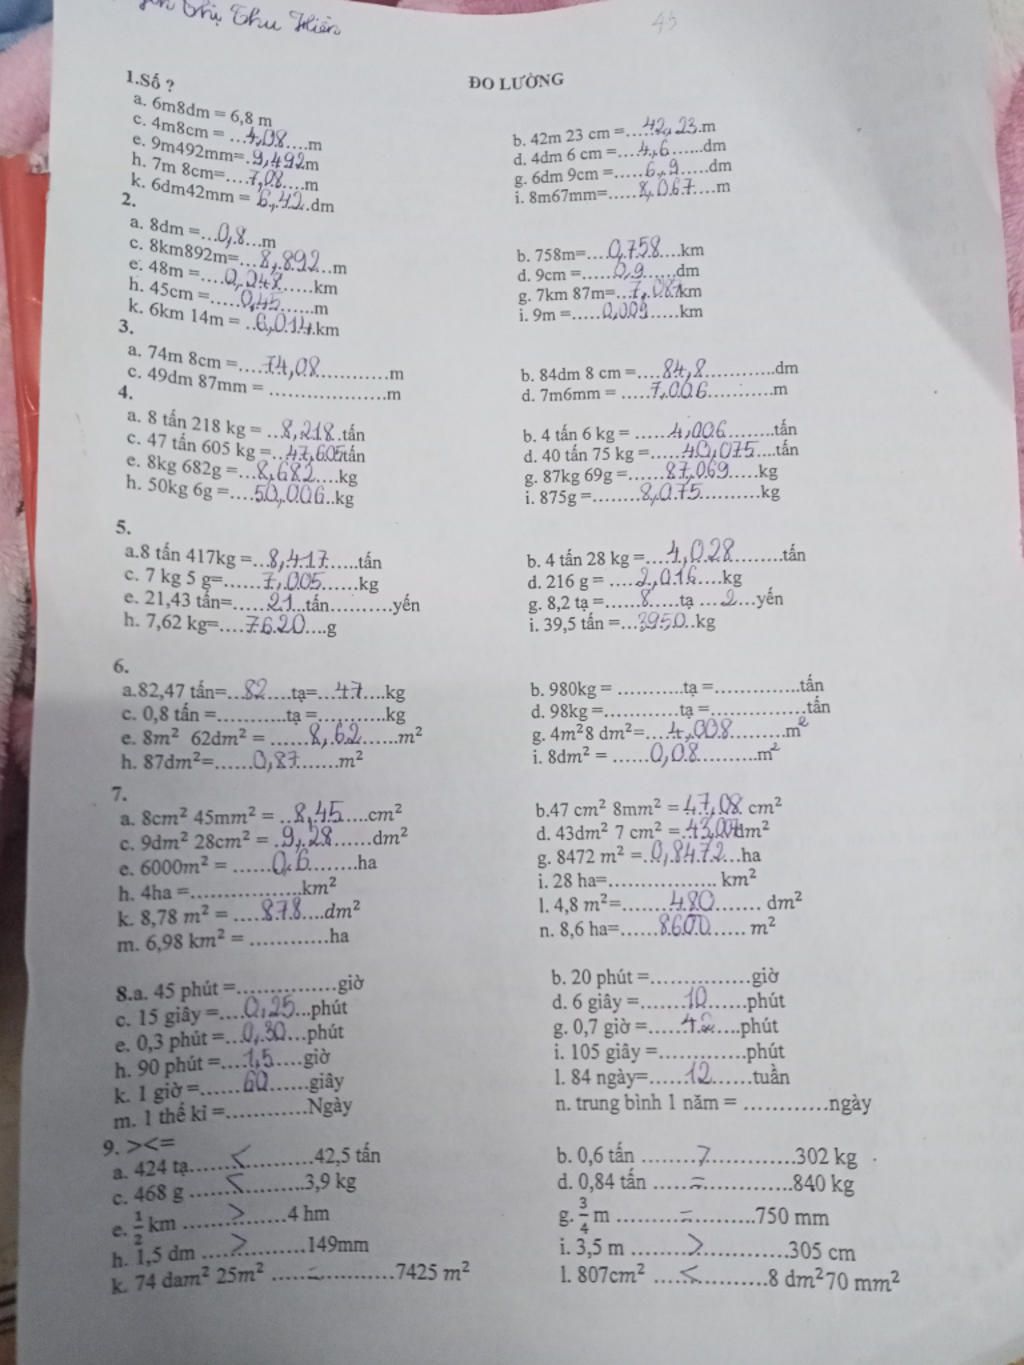 Thị Thu Hiền
45
ĐO LƯỜNG
1.Số ?
a. 6m8dm = 6,8 m
b. 42m 23 cm =.....42,23.m
c. 4m8cm = ...4,08....m
d. 4dm 6 cm =....4,6......dm
e. 9m492mm=.9,492m
g. 6dm 9cm =.....6,9.....dm
h. 7m 8cm=....7,08....m
i. 8m67mm=.....8,067....m
k. 6dm42mm = 6,42.dm
2.
a. 8dm =...0,8...m
b. 758m=...0,758....km
c. 8km892m=...8,892...m
d. 9cm =.....0,9......dm
e. 48m =....0,048......km
g. 7km 87m=...7,087km
h. 45cm =.....0,45.......m
i. 9m =.....0,009.....km
k. 6km 14m = ..6,014.km
3.
a. 74m 8cm =....74,08............m
b. 84dm 8 cm =....84,8............dm
c. 49dm 87mm = ....................m
d. 7m6mm = .....7,006............m
4.
a. 8 tấn 218 kg = ..8,218.tấn
b. 4 tấn 6 kg = ......4,006........tấn
c. 47 tấn 605 kg =..47,605tấn
d. 40 tấn 75 kg =.....40,075....tấn
e. 8kg 682g=...8,682....kg
g. 87kg 69g =......87,069.....kg
h. 50kg 6g =....50,006..kg
i. 875g =........8,075...........kg
5.
a.8 tấn 417kg =..8,417.....tấn
b. 4 tấn 28 kg =....4,028.........tấn
c. 7 kg 5 g=......7,005......kg
d. 216 g = ....2,016....kg
e. 21,43 tấn=.....21...tấn...........yến
g. 8,2 tạ =.......8.....tạ ....2...yến
h. 7,62 kg=....7620....g
i. 39,5 tấn =...3950..kg
6.
a.82,47 tấn=...82....tạ=...47....kg
b. 980kg = ...........tạ =...............tấn
c. 0,8 tấn =............tạ =............kg
d. 98kg =.............tạ =................tấn
e. 8m² 62dm² = ......8,62......m²
g. 4m²8 dm²=....4,008.........m²
h. 87dm²=......0,87.......m²
i. 8dm² = ......0,08..........m²
7.
a. 8cm² 45mm² = ..8,45....cm²
b.47 cm² 8mm² = 47,08. cm²
c. 9dm² 28cm² = .9,28......dm²
d. 43dm² 7 cm² =.43,007dm²
e. 6000m² = ......0,6........ha
g. 8472 m² =.0,8472...ha
h. 4ha =...................km²
i. 28 ha=.................. km²
k. 8,78 m² = ....878....dm²
l. 4,8 m²=........480........ dm²
m. 6,98 km² = ..............ha
n. 8,6 ha=......8600...... m²
8.a. 45 phút =................giờ
b. 20 phút =................giờ
c. 15 giây =....0,25...phút
d. 6 giây =.......10.......phút
e. 0,3 phút =...0,30...phút
g. 0,7 giờ =.....42....phút
h. 90 phút =....1,5....giờ
i. 105 giây =..............phút
k. 1 giờ =......60......giây
l. 84 ngày=......12.......tuần
m. 1 thế kỉ =.............Ngày
n. trung bình 1 năm = .............ngày
9. ><=
a. 424 tạ......<...........42,5 tấn
b. 0,6 tấn ........>.............302 kg
c. 468 g ......<..........3,9 kg
d. 0,84 tấn ......=..............840 kg
e. 1/2 km ........>.......4 hm
g. 3/4 m .........=..........750 mm
h. 1,5 dm .....>..........149mm
i. 3,5 m .........>.............305 cm
k. 74 dam² 25m² .....=............7425 m²
l. 807cm² .....<...........8 dm²70 mm²